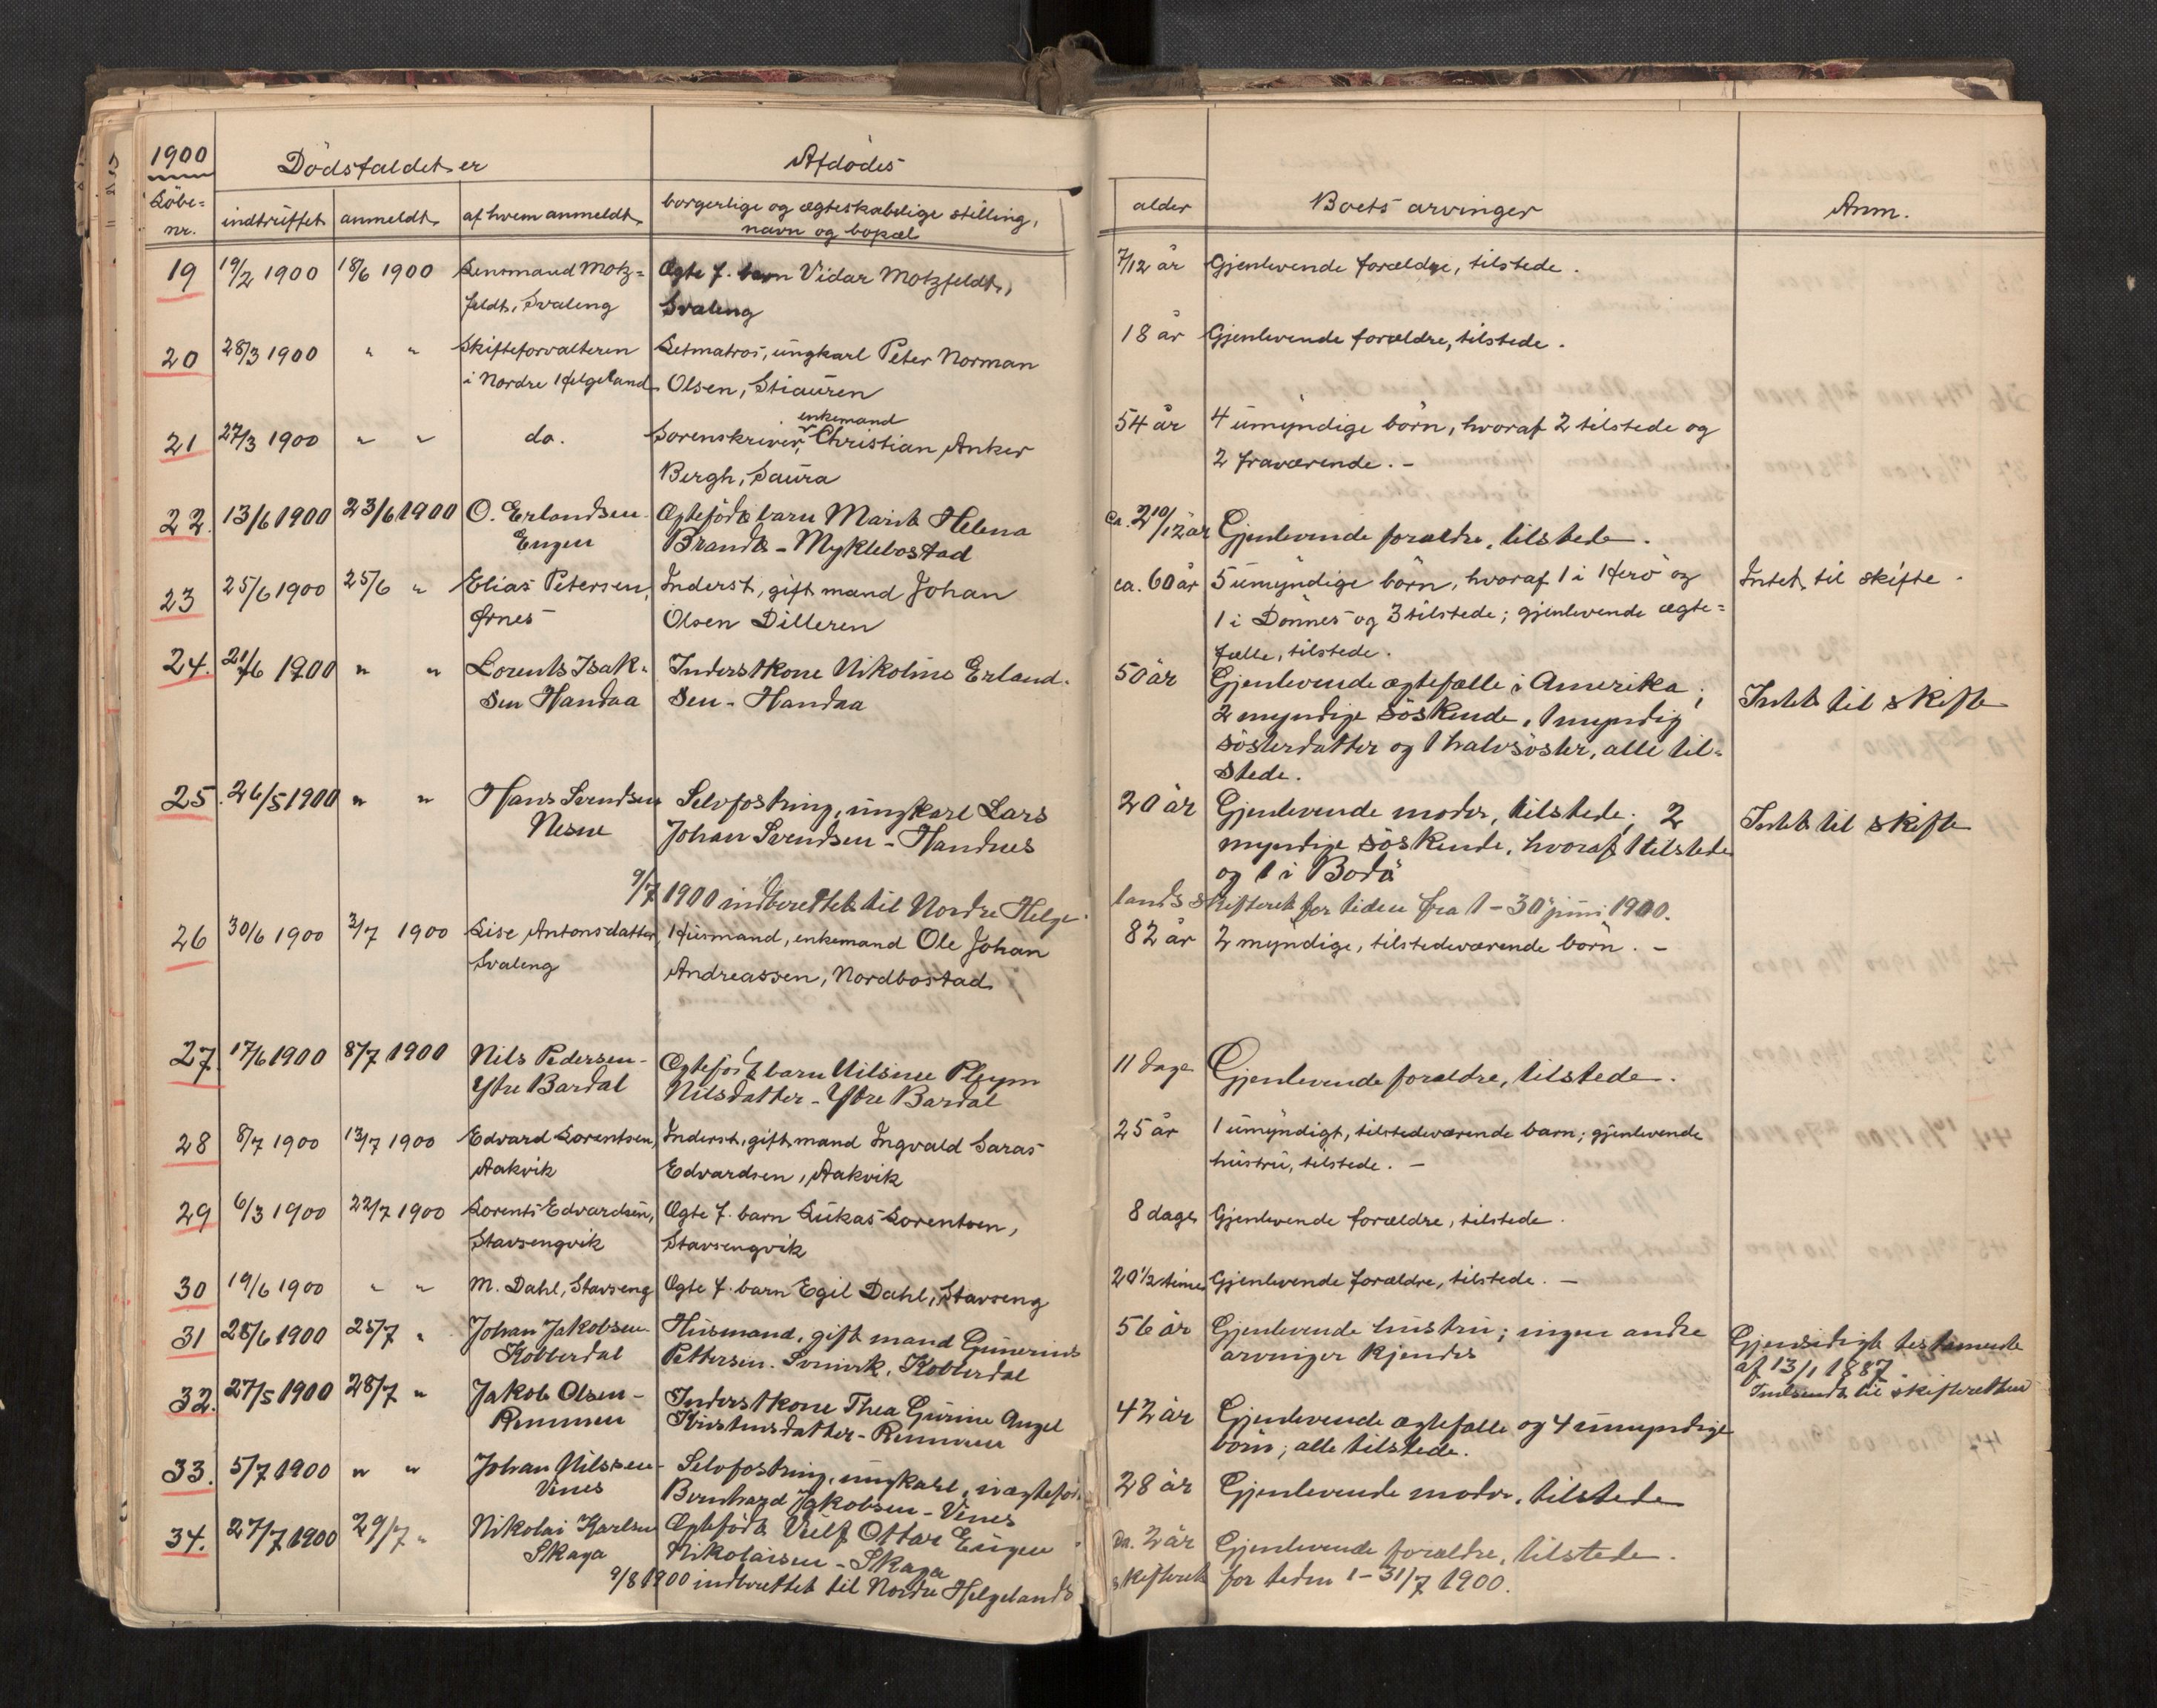 1900
Dödsfaldet er
Afdödes
Löbe-
nr.
indtruffet
anmeldt
af hvem anmeldt
borgerlige og ægteskabelige stilling,
navn og bopæl
alder
Boets arvinger
Anm.
19 19/2 1900 18/6 1900 Lensmand Motz- Ægte f. barn Vidar Motzfeldt, 7/12 år Gjenlevende forældre, tilstede.
feldt, Svaleng Svaleng
20 28/3 1900 " " Skifteforvalteren Letmatros, ungkarl Peter Norman 18 år Gjenlevende forældre, tilstede.
i Nordre Helgeland Olsen, Stiauren
21 27/3 1900 " " do. Sorenskriver, enkemand Christian Anker 54 år 4 umyndige börn, hvoraf 2 tilstede og
Bergh, Saura 2 fraværende. -
22. 13/6 1900 23/6 1900 O. Erlandsen Ægtefödt barn Marit Helena ca. 2 10/12 år Gjenlevende forældre, tilstede.
Engen Brandt - Myklebostad
23 25/6 1900 25/6 " Elias Petersen, Inderst, gift mand Johan ca. 60 år 5 umyndige börn, hvoraf 1 i Herö og Intet til skifte.
Ørnes Olsen Dilleren 1 i Dönnes og 3 tilstede; gjenlevende ægte-
fælle, tilstede.
24. 21/6 1900 " " Lorents Isak- Inderstkone Nikoline Erland- 50 år Gjenlevende ægtefælle i Amerika; Intet til skifte
sen Handaa sen - Handaa 2 myndige söskende, 1 myndig
sösterdatter og 1 halvsöster, alle til-
stede.
25. 26/5 1900 " " Hans Svendsen Selvfostring, ungkarl Lars 20 år Gjenlevende moder, tilstede; 2 Intet til skifte
Nesne Johan Svendsen - Handnes myndige söskende, hvoraf 1 tilstede
og 1 i Bodö
9/7 1900 indberettet til Nordre Helge- lands skifteret for tiden fra 1 - 30 juni 1900.
26 30/6 1900 2/7 1900 Lise Antonsdatter, Husmand, enkemand Ole Johan 82 år 2 myndige, tilstedeværende börn. -
Svaleng Andreassen, Nordbostad
27. 17/6 1900 8/7 1900 Nils Pedersen - Ægtefödt barn Nilsine Pleym 11 dage Gjenlevende forældre, tilstede.
Ytre Bardal Nilsdatter - Ytre Bardal
28 8/7 1900 13/7 1900 Edvard Lorentsen, Inderst, gift mand Ingvald Saras 25 år 1 umyndigt, tilstedeværende barn; gjenlevende
Aakvik Edvardsen, Aakvik hustru, tilstede. -
29 6/3 1900 22/7 1900 Lorents Edvardsen, Ægte f. barn Lukas Lorentsen, 8 dage Gjenlevende forældre, tilstede.
Stavsengvik Stavsengvik
30 19/6 1900 " " M. Dahl, Stavseng Ægte f. barn Egil Dahl, Stavseng 20 1/2 time Gjenlevende forældre, tilstede. -
31 28/6 1900 25/7 " Johan Jakobsen Husmand, gift mand Gunerius 56 år Gjenlevende hustru; ingen andre Gjensidigt testamente
Koblerdal Pettersen. Koblerdal arvinger kjendes af 13/1 1887.
Indsendt til skifteretten
32. 27/5 1900 28/7 " Jakob Olsen - Inderstkone Thea Gurine Angel 42 år Gjenlevende ægtefælle og 4 umyndige
Remmen Kristensdatter - Remmen börn, alle tilstede.
33. 5/7 1900 " " Johan Nilssen - Selvfostring, ungkarl, uægtefödt 28 år Gjenlevende moder, tilstede
Vines Bernhard Jakobsen - Vines
34. 27/7 1900 29/7 " Nikolai Karlsen Ægtefödt Ulf Ottar Eugen ca. 2 år Gjenlevende forældre, tilstede.
Skaga Nikolaisen - Skaga
9/8 1900 indberettet til Nordre Helgelands skifteret for tiden 1 - 31/7 1900.